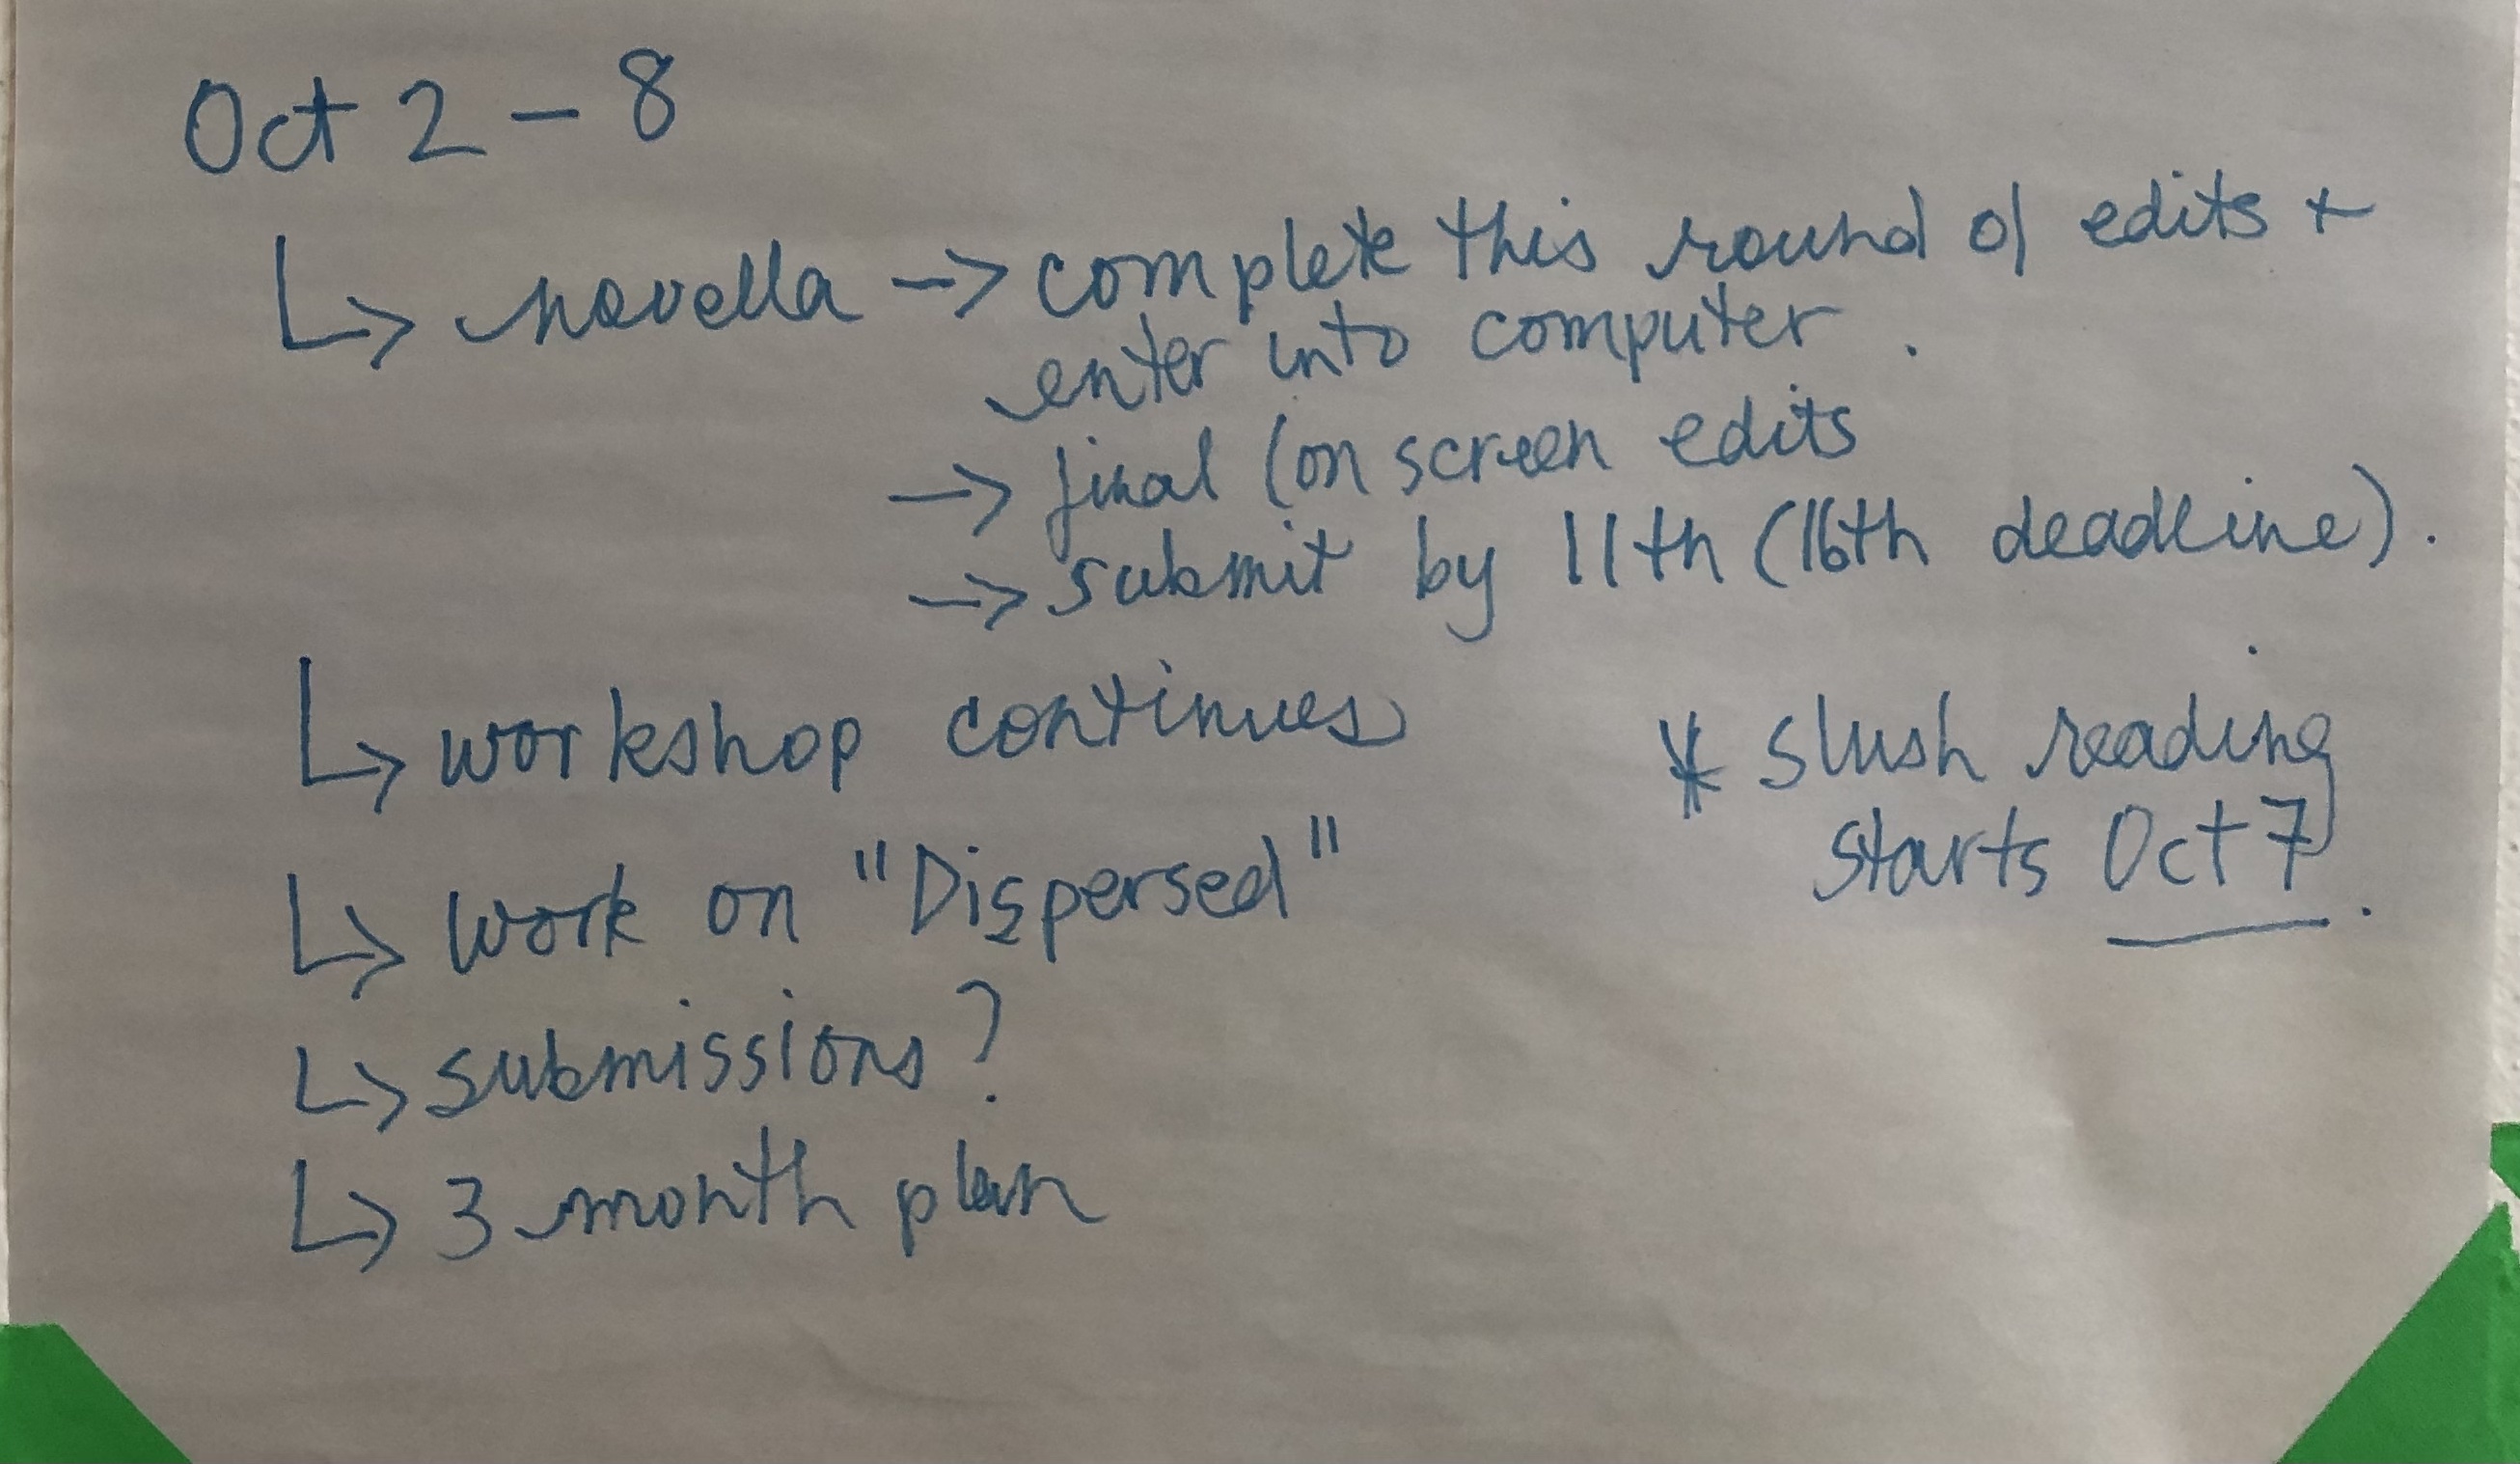 Oct 2 - 8
↳ novella -> complete this round of edits +
enter into computer.
-> final (on screen edits
-> submit by 11th (16th deadline).
↳ workshop continues
* slush reading
starts Oct 7.
↳ work on "Dispersed"
↳ submissions?
↳ 3 month plan